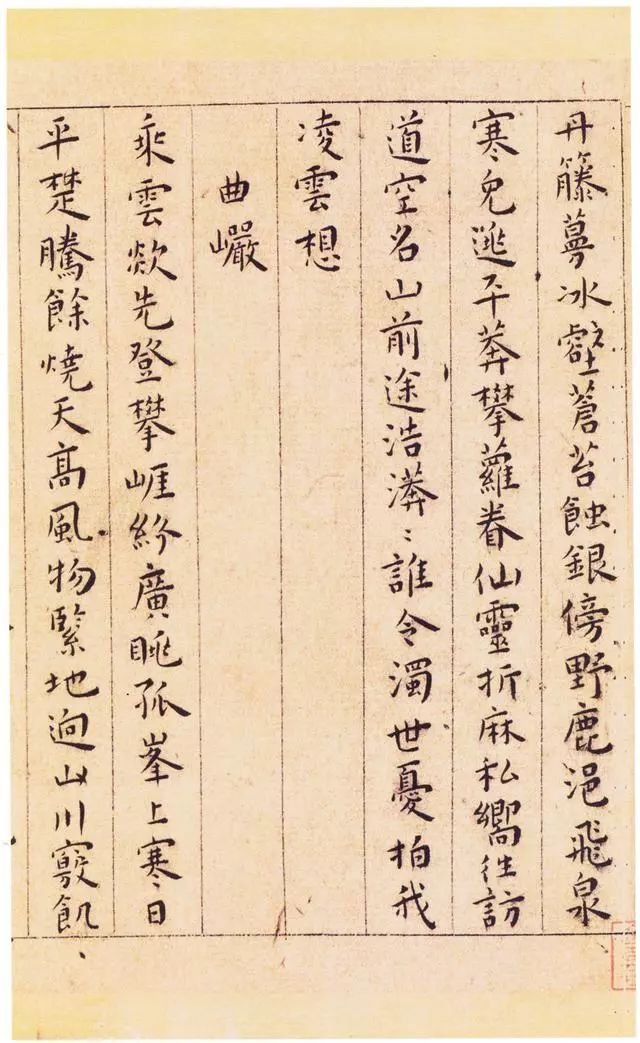 丹籐蔓冰壑蒼苔蝕銀傍野鹿浥飛泉
寒兔逃平莽攀蘿眷仙靈折麻私嚮往訪
道空名山前途浩漭〻誰令濁世憂拍我
凌雲想
曲巖
乘雲欻先登攀崕終廣眺孤峯上寒日
平楚騰餘燒天高風物緊地迥山川竅飢